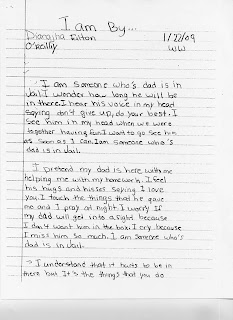 I am By...
Diangjha Eilton 1/22/09
O'Reilly WW
I am someone who's dad is in
Jail. I wonder how long he will be
in there. I hear his voice in my head
saying don't give up, do your best. I
see him in my head when we were
together having fun. I want to go see him
as soon as I can. I am someone who's
dad is in Jail.
I pretend my dad is here with me
helping me with my homework. I feel
his hugs and kisses. Saying I love
you. I touch the things that he gave
me and I pray at night. I worry if
my dad will get into a fight because
I don't want him in the box. I cry because
I miss him so much. I am someone who's
dad is in Jail.
I understand that it hurts to be in
there but It's the things that you do